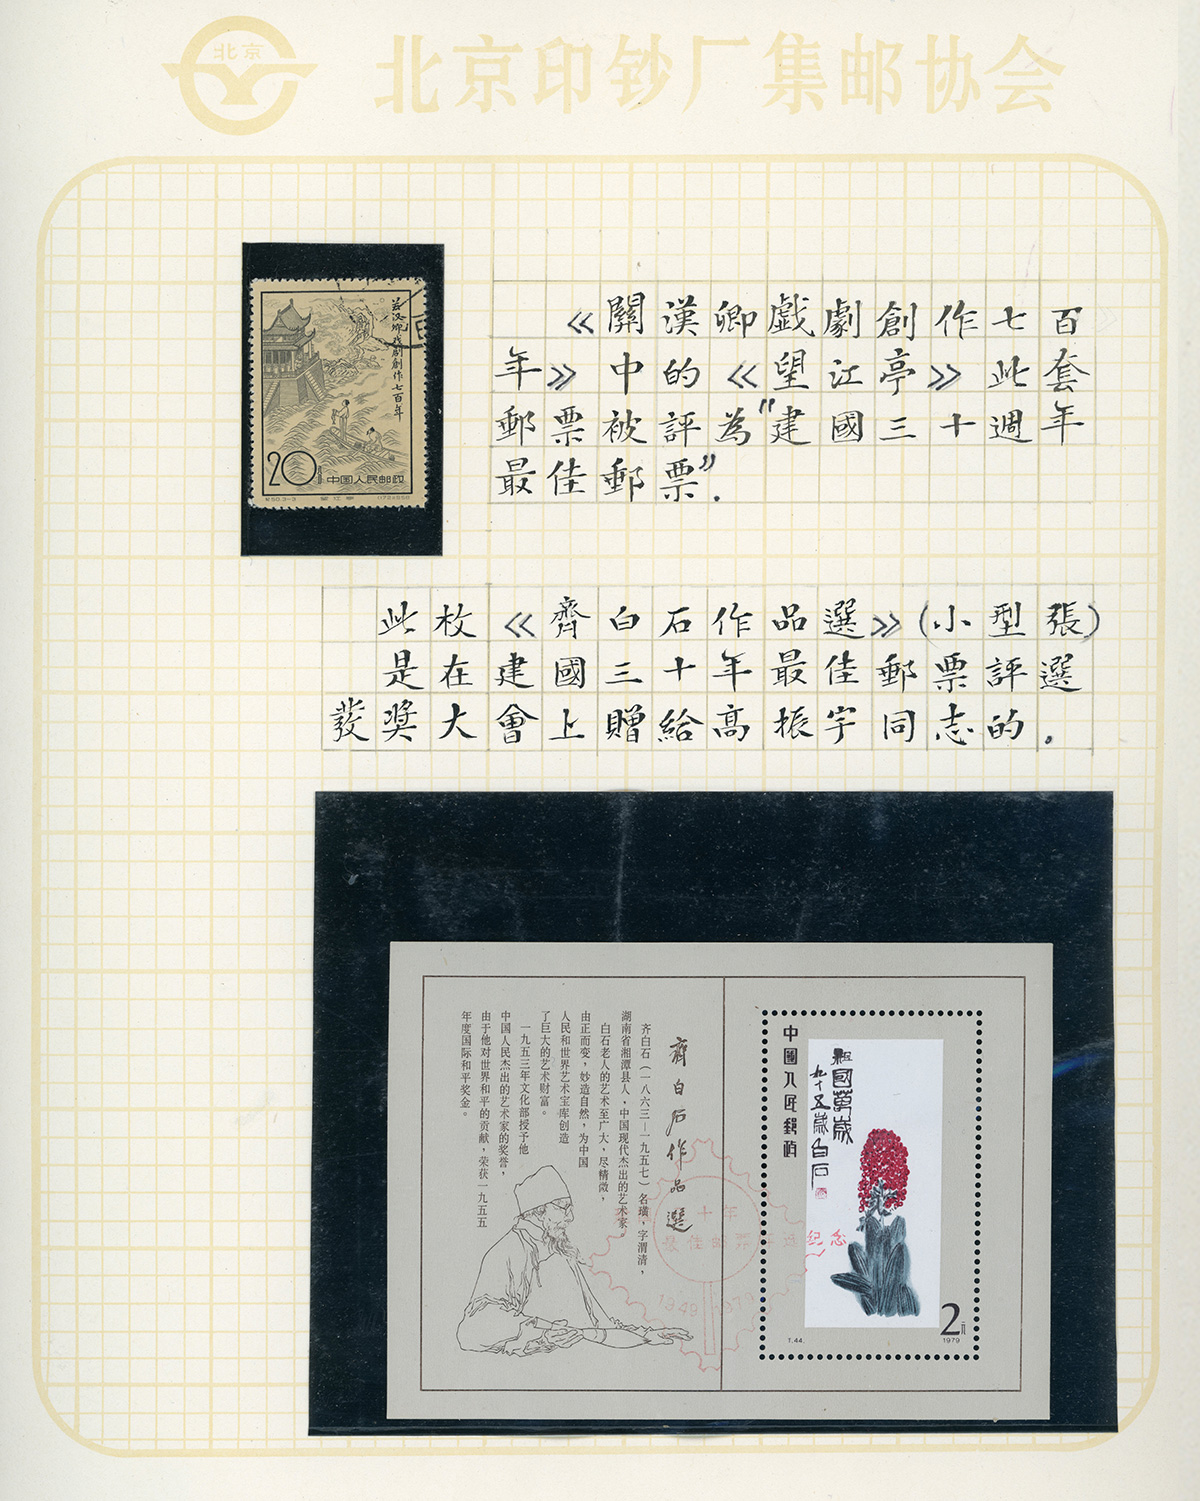 北京
北京印钞厂集邮协会
关汉卿戏剧创作七百年
20
中国人民邮政
纪50.3-3
望江亭
《關漢卿戯劇創作七百
年》中的《望江亭》此套
郵票被評為"建國三十週年
最佳郵票".
此枚《齊白石作品選》(小型張)
是在建國三十年最佳郵票評選
發奖大會上贈給高振宇同志的.
齊白石作品選
齐白石(一八六三—一九五七)名璜,字渭清,
湖南省湘潭县人,中国现代杰出的艺术家。
白石老人的艺术至广大,尽精微,
由正而变,妙造自然,为中国
人民和世界艺术宝库创造
了巨大的艺术财富。
一九五三年文化部授予他
中国人民杰出的艺术家的奖誉,
由于他对世界和平的贡献,荣获一九五五
年度国际和平奖金。
中國人民郵政
祖國萬歲
九十五歲白石
十年
最佳邮票评选纪念
1949 1979
T.44.
2元
1979